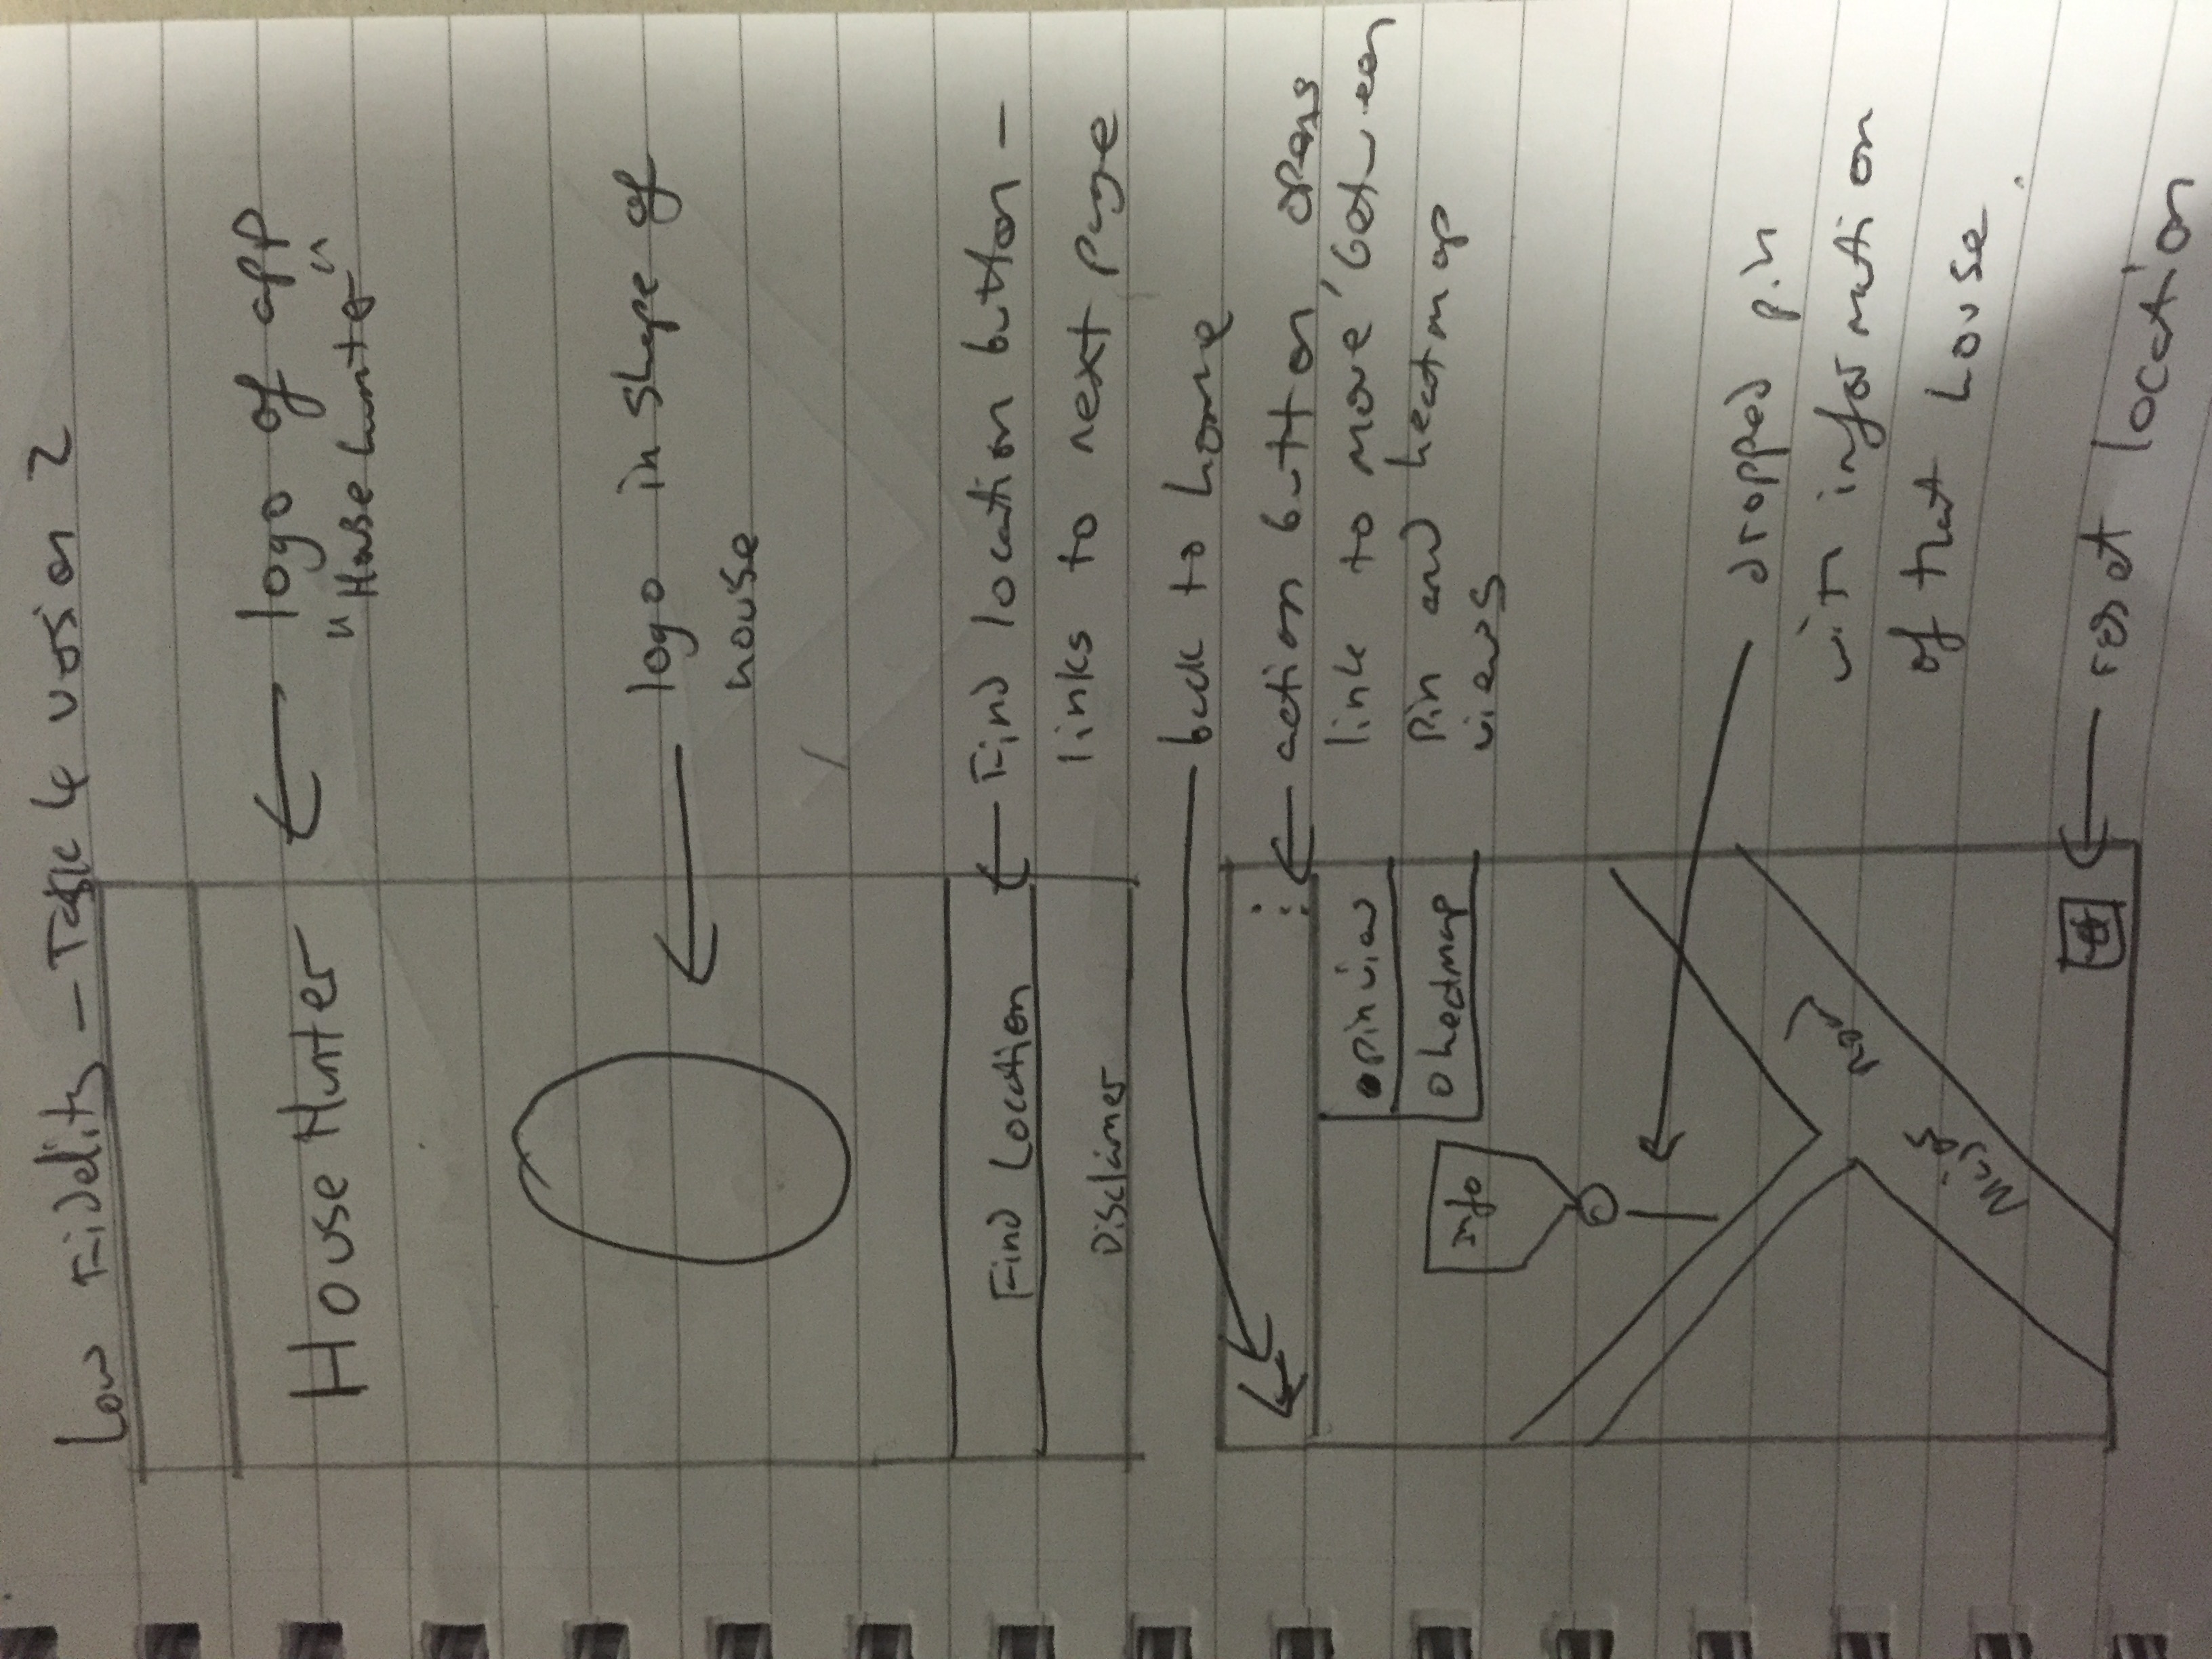 Low Fidelity - Task 4 version 2
House Hunter
logo of app
"House hunter"
logo in shape of
house
Find Location
Find location button -
links to next page
Disclaimer
back to home
action button, opens
link to move between
pin and heatmap
views
pin view
heatmap
Info
dropped pin
with information
of that house.
Major Road
reset location